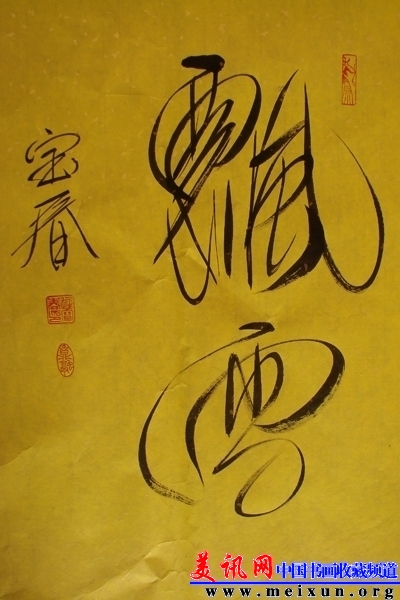 飘雪
宝春
美讯网 中国书画收藏频道
www.meixun.org